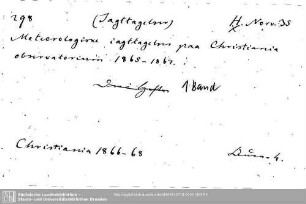 298 (Iagttagelser) H. Norv. 35
Meteorologiske iagttagelser paa Christiania
observatorium 1865-1867.
1 Band
Christiania 1866-68
4.
Sächsische Landesbibliothek -
Staats- und Universitätsbibliothek Dresden